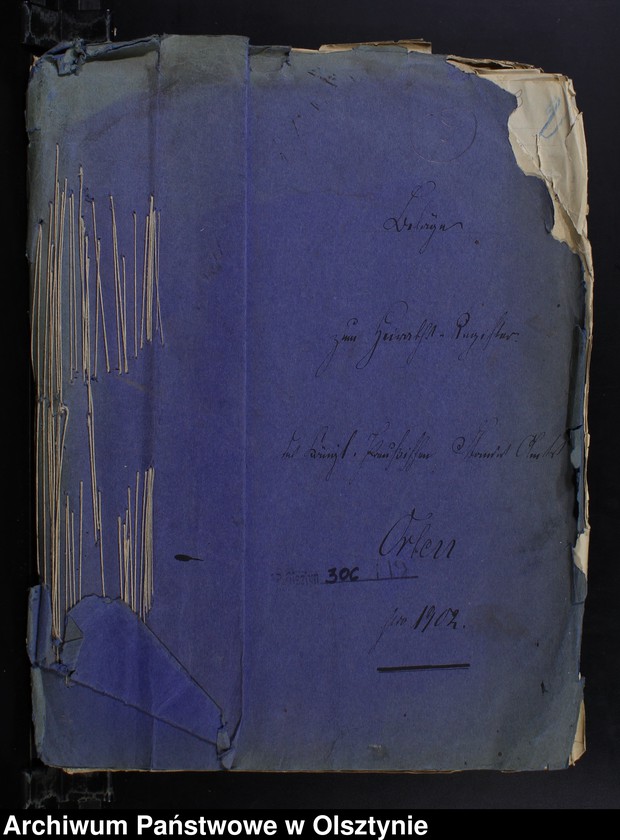 Beläge
zum Heiraths-Register
des Königl. Preußischen Standes Amtes
Orlen
306
pro 1902.
Archiwum Państwowe w Olsztynie